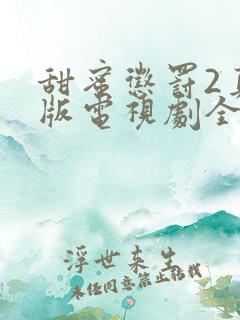 甜蜜懲罰2
版電視劇全
浮世来生
未经同意禁止转载